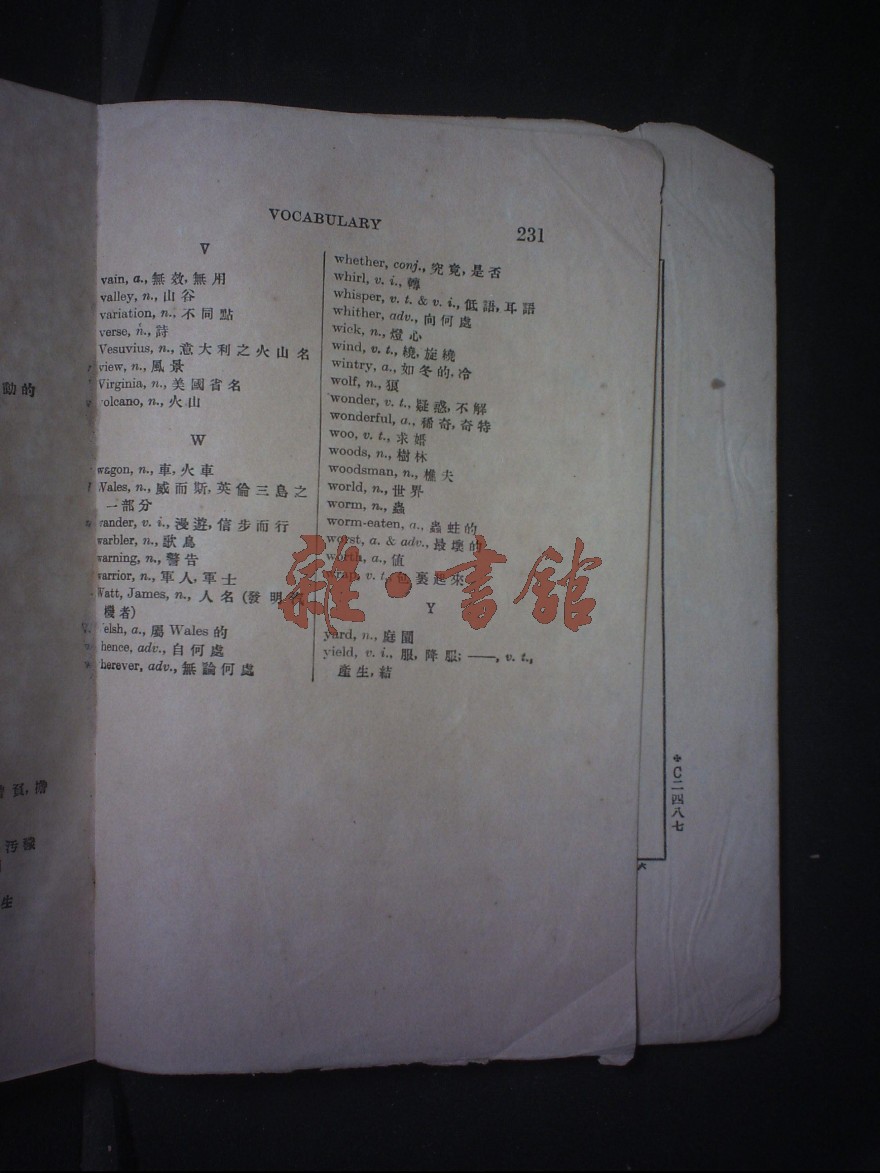 VOCABULARY
231
V
vain, a., 無效, 無用
valley, n., 山谷
variation, n., 不同點
verse, n., 詩
Vesuvius, n., 意大利之火山名
view, n., 風景
Virginia, n., 美國省名
volcano, n., 火山
W
wagon, n., 車, 火車
Wales, n., 威而斯, 英倫三島之
一部分
wander, v. i., 漫遊, 信步而行
warbler, n., 歌鳥
warning, n., 警告
warrior, n., 軍人, 軍士
Watt, James, n., 人名 (發明汽
機者)
Welsh, a., 屬 Wales 的
whence, adv., 自何處
wherever, adv., 無論何處
whether, conj., 究竟, 是否
whirl, v. i., 轉
whisper, v. t. & v. i., 低語, 耳語
whither, adv., 向何處
wick, n., 燈心
wind, v. t., 橈, 旋橈
wintry, a., 如冬的, 冷
wolf, n., 狼
wonder, v. t., 疑惑, 不解
wonderful, a., 稀奇, 奇特
woo, v. t., 求婚
woods, n., 樹林
woodsman, n., 樵夫
world, n., 世界
worm, n., 蟲
worm-eaten, a., 蟲蛀的
worst, a. & adv., 最壞的
worth, a., 值
wrap, v. t., 包裹起來
Y
yard, n., 庭園
yield, v. i., 服, 降服; ——, v. t.,
產生, 結
動的
擔
汚穢
生
雜·書館
C二四八七
六